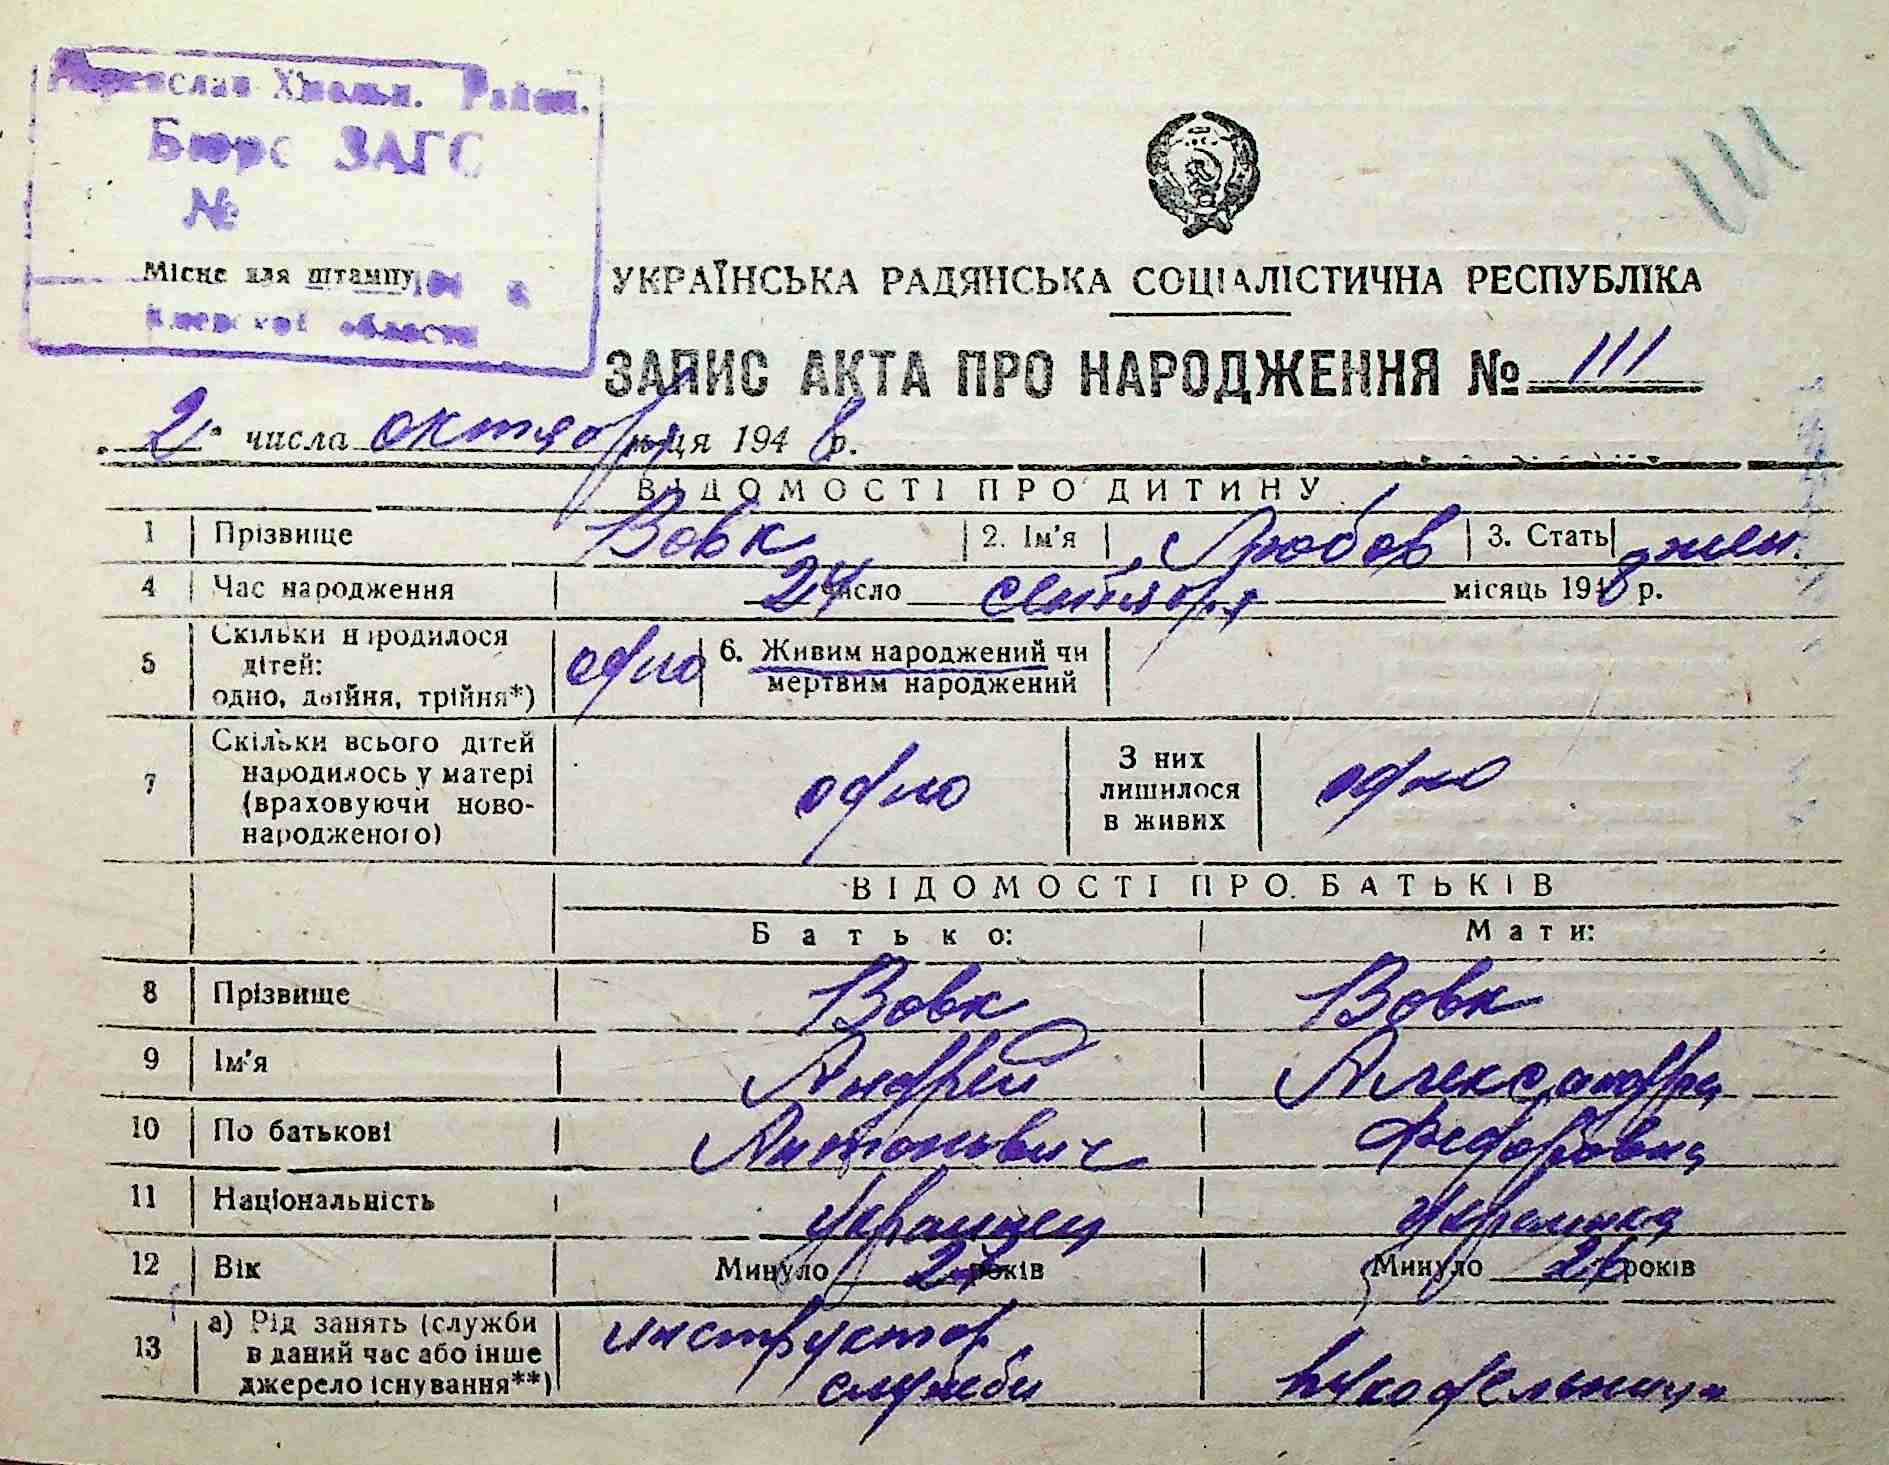 111
Переяслав Хмельн. Район.
Бюро ЗАГС
№
Місце для штампу 194 г.
Киевской области
УКРАЇНСЬКА РАДЯНСЬКА СОЦІАЛІСТИЧНА РЕСПУБЛІКА
ЗАПИС АКТА ПРО НАРОДЖЕННЯ № 111
„ 2 " числа октября м-ця 1948 р.
ВІДОМОСТІ ПРО ДИТИНУ
1 Прізвище Вовк 2. Ім'я Любов 3. Стать жен.
4 Час народження 24 число сентября місяць 1948 р.
5 Скільки народилося
дітей:
одно, двійня, трійня*) одно 6. Живим народжений чи
мертвим народжений
7 Скільки всього дітей
народилось у матері
(враховуючи ново-
народженого) одно З них
лишилося
в живих одно
ВІДОМОСТІ ПРО БАТЬКІВ
Батько: Мати:
8 Прізвище Вовк Вовк
9 Ім'я Андрей Александра
10 По батькові Антонович Федоровна
11 Національність украинец украинка
12 Вік Минуло років Минуло років
13 а) Рід занять (служби
в даний час або інше
джерело існування**) инструктор
службы рукодельница